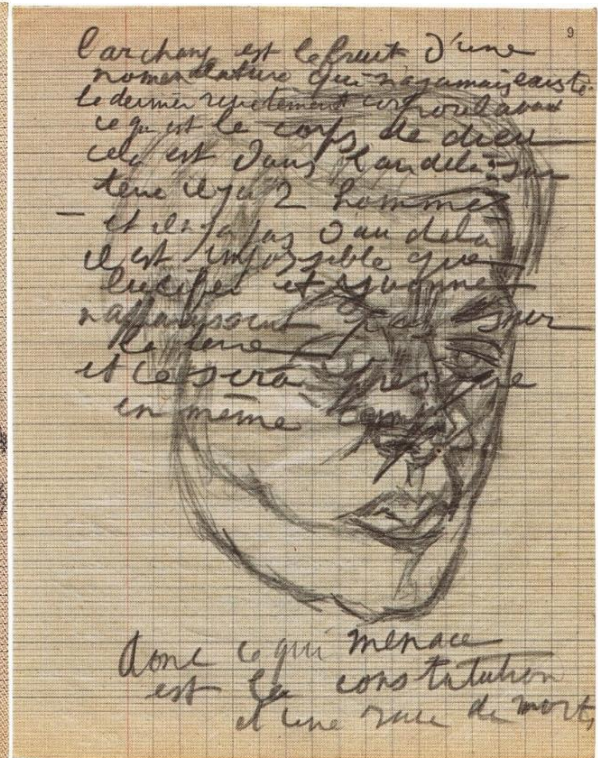 9
l'archange est le fruit d'une
nomenclature qui n'a jamais existé
le dernier corporel avant
ce qui est le corps de dieu
cela est dans l'au delà sur
terre il y a 2 hommes
— et il n'y a pas d'au delà
il est impossible que
lucifer et
n'apparaissent pas sur
la terre
et ce sera presque
en même temps
donc ce qui menace
est la constitution
d une race de morts